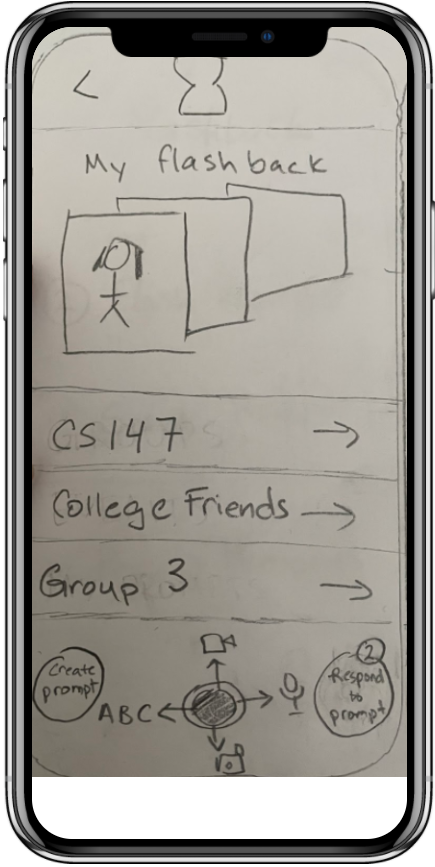 <
My flashback
CS147 →
College Friends →
Group 3 →
Create
prompt
ABC
2
Respond
to
prompt